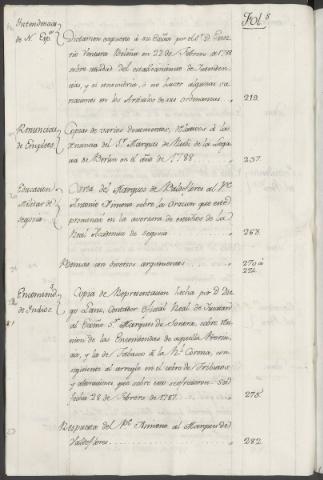 Fol.s
Intendencias de N. Esp.a
Dictamen expuesto à su Exâ por el S.r D. Euse
bio Ventura Beleña en 22 de Febrero de
sobre utilidad del establecimiento de Intenden
cias, y si convendria, ò no hacer algunas va
riaciones en los Artículos de sus ordenanzas
219.
Renuncias de Empleos
Copias de varios documentos, relativos à la
renuncia del S.r Marques de de la lega
de Berlin en el año de 1788
257.
Educacion Militar de Segovia
Carta del Marques de Valdeflores al P.e
Antonio Ximeno sobre la Oracion que este
pronunció en la avertura de estudios de la
Real Academia de Segovia
268.
Poesias con diversos argumentos
270 à
274.
Encomiend.s de Indios
Copia de Representacion hecha por D. Die
go Sanz, Contador Oficial Real de Yucatan
al Exmo S.r Marques de Sonora, sobre Reu
nion de las Encomiendas de aquella Provin
cia, y la de Tabasco à la R.l Corona, con
siguiente al arreglo en el cobro de Tributos
y alteraciones que sobre esto refirieron. Su
fecha 28 de Febrero de 1787.
275.
Respuesta del P.e Ximeno al Marques de
Valdeflores
282.